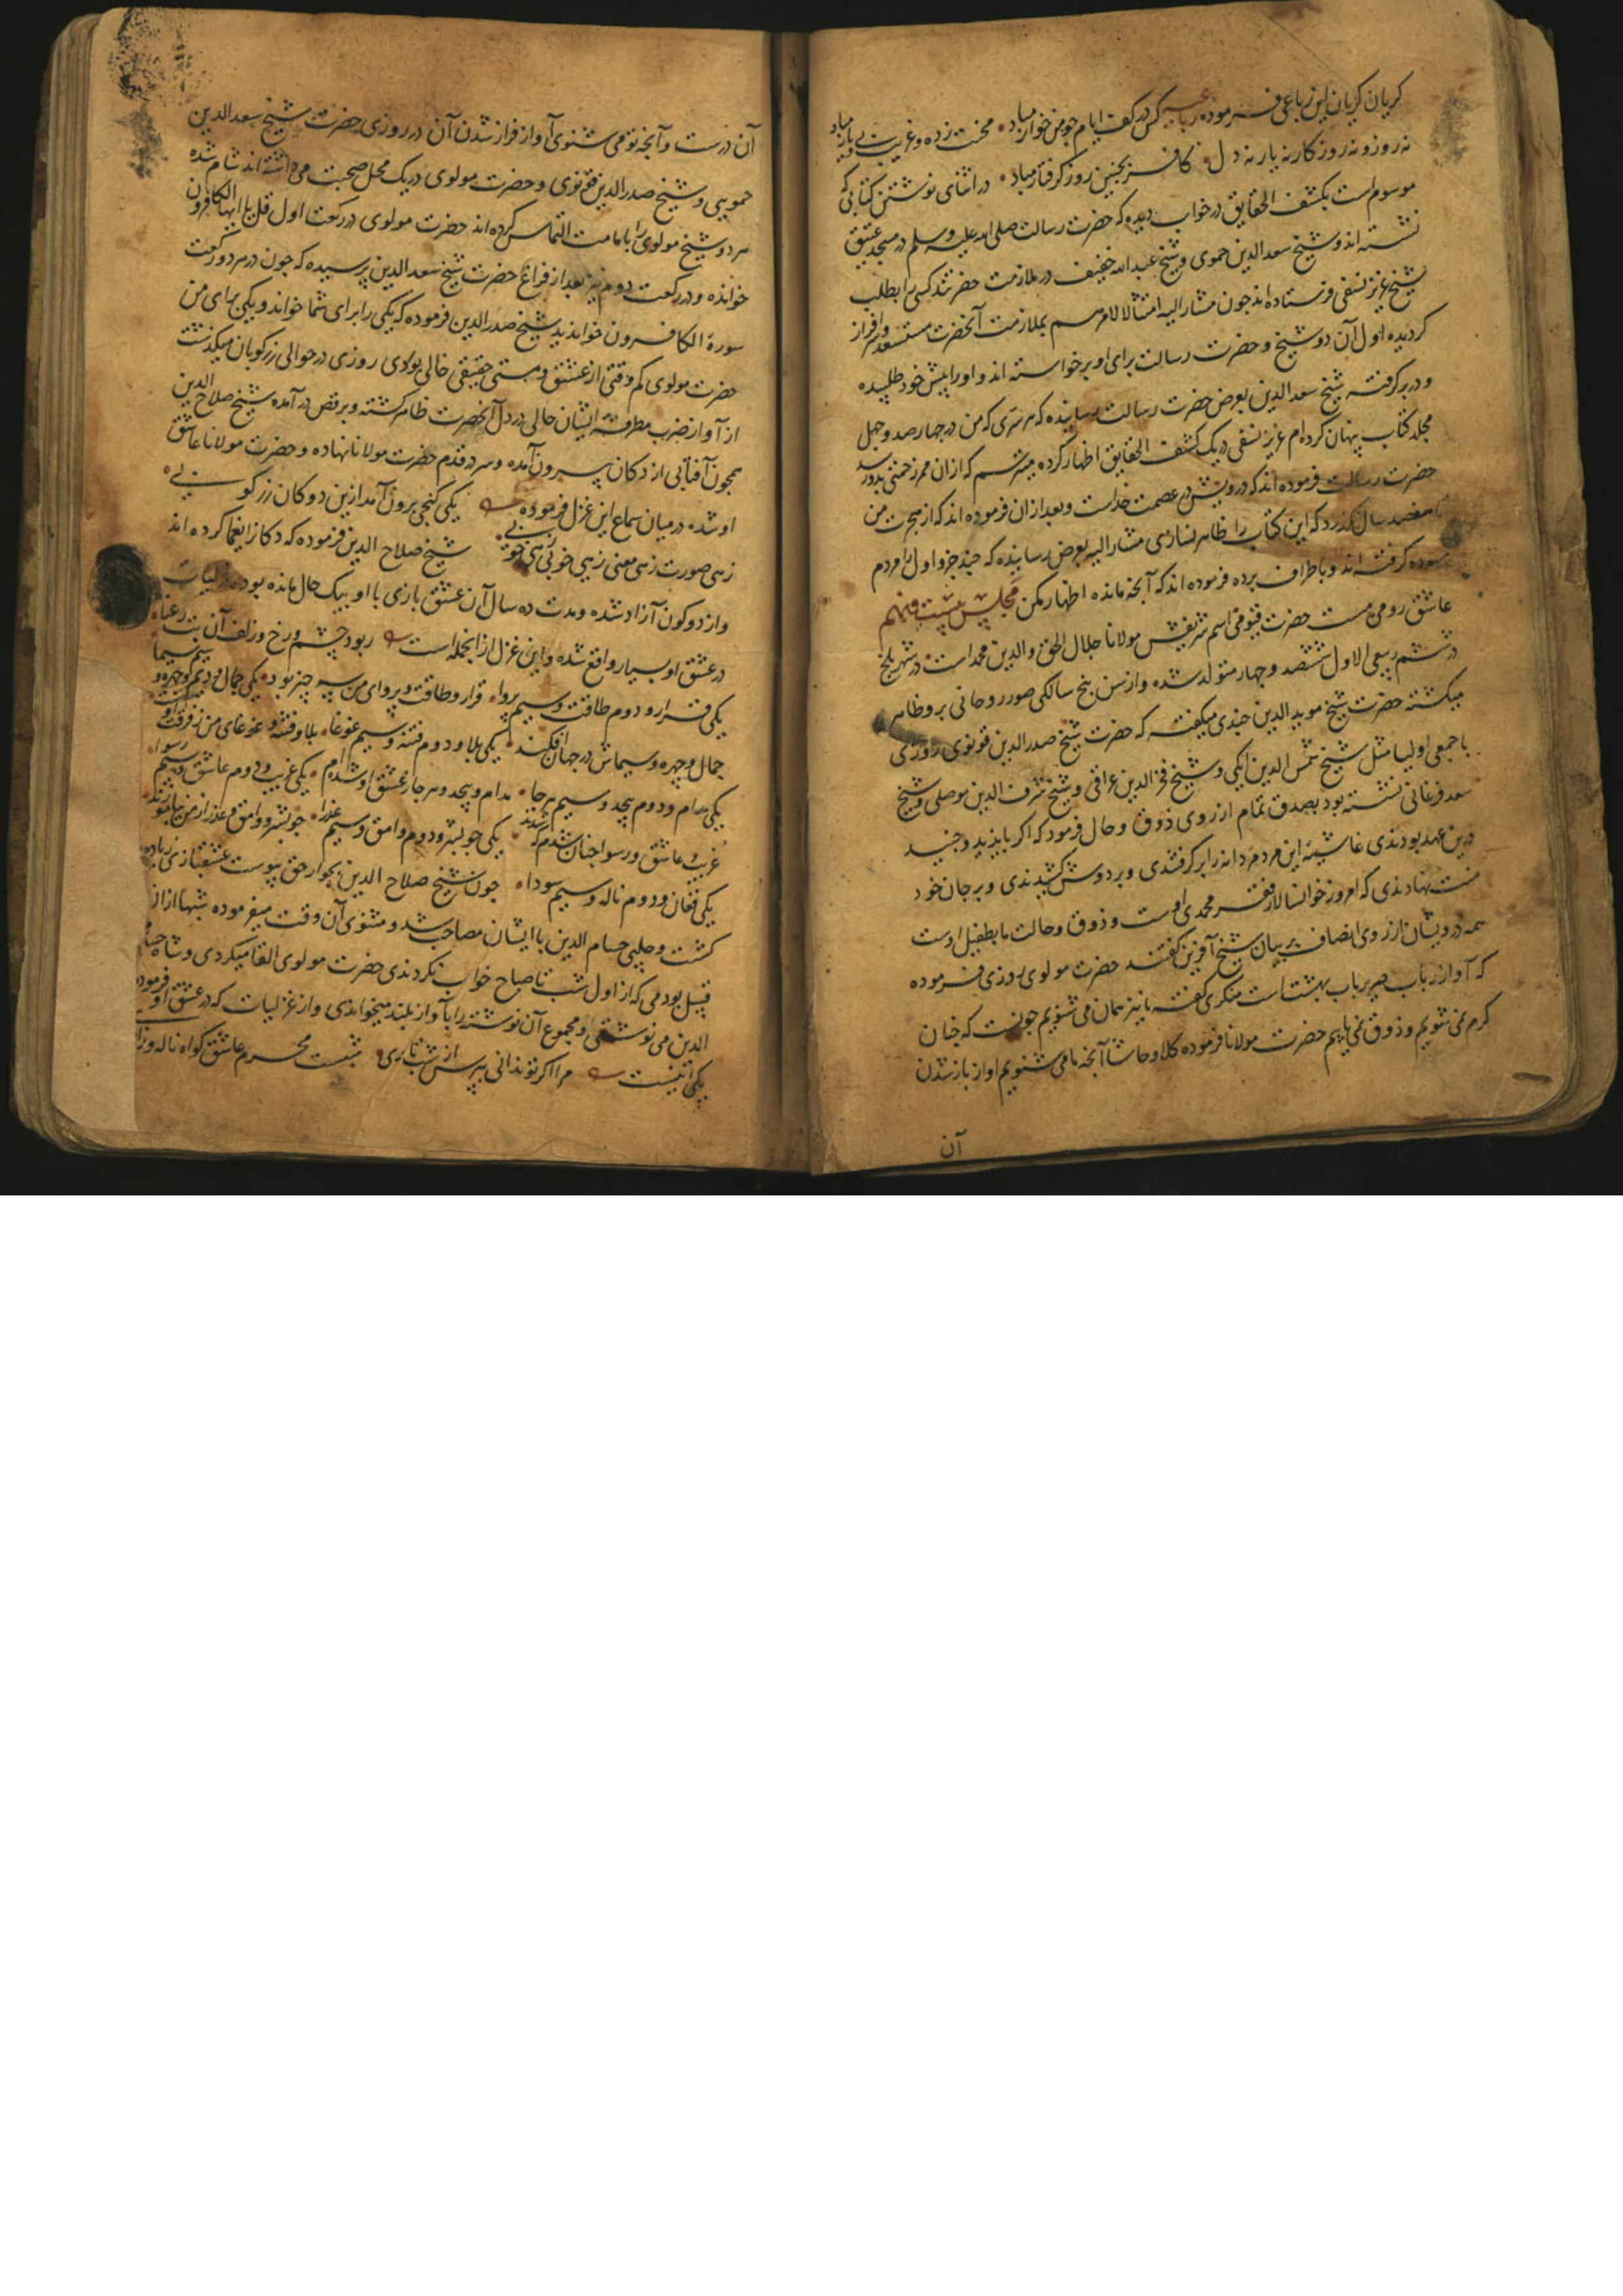 کریان کریان این رباعی فرموده رباعیه کس در کف ایام جو من خوار مباد محنت زده و غریب بی یار مباد
نه روز و نه روزکار نه یار نه دل کافر بجنین روز کرفتار مباد در اثنای نوشتن کتابی که
موسوم است بکشف الحقایق در خواب دیده که حضرت رسالت صلی الله علیه وسلم در مسجد عتیق
نشسته اند و شیخ سعد الدین حموی و شیخ عبد الله خفیف در ملازمت حضرتند کسی را بطلب
شیخ عزیز نسفی فرستاده اند جون مشار الیه امتثالا لامرهم بملازمت آنحضرت مستسعد و سرافراز
کردیده اول آن دو شیخ و حضرت رسالت برای او برخواسته اند و او را پیش خود طلبیده
و در بر کرفته شیخ سعد الدین بعرض حضرت رسالت رسانیده که هر سری که من در جهار صد و جهل
مجلد کتاب پنهان کرده ام عزیز نسفی در یک کشف الحقایق اظهار کرده میترسم که ازان ممر زحمتی بدو رسد
حضرت رسالت فرموده اند که درویش در عصمت خداست و بعد ازان فرموده اند که از هجرت من
تا هفتصد سال نکذرد که این کتاب را ظاهر نسازی مشار الیه بعرض رسانیده که جند جزو اول را مردم
سوده کرفته اند و باطراف برده فرموده اند که آنجه مانده اظهار مکن مجلس بیست و نهم
عاشق رومی مست حضرت قیومی اسم شریفش مولانا جلال الحق و الدین محمد است در شهر بلخ
در ششم ربیع الاول ششصد و جهار متولد شده و از سن پنج سالکی صور روحانی برو ظاهر
میکشته حضرت شیخ موید الدین جندی میکفته که حضرت شیخ صدر الدین قونوی روزی
با جمعی اولیا مثل شیخ شمس الدین ایکی و شیخ فخر الدین عراقی و شیخ شرف الدین موصلی و شیخ
سعد فرغانی نشسته بود بصدق تمام از روی ذوق و حال فرمود که اکر بایزید و جنید
درین عهد بودندی غاشیه این مردم دانه را بر کرفتندی و بر دوش کشیدندی و بر جان خود
منت نهادندی که امروز خوانسالار فقر محمدی اوست و ذوق و حالت ما بطفیل اوست
همه درویشان از روی انصاف بر بیان شیخ آفرین کفتند حضرت مولوی روزی فرموده
که آواز رباب صریر باب بهشت است منکری کفته ما نیز همان می شنویم جونست که جنان
کرم نمی شویم و ذوق نمی یابیم حضرت مولانا فرموده کلا و حاشا آنجه ما می شنویم آواز باز شدن
آن
آن درست و آنجه تو می شنوی آواز فراز شدن آن در روزی حضرت شیخ سعد الدین
حمویی و شیخ صدر الدین قونوی و حضرت مولوی در یک محل صحبت می داشته اند شام شده
هر دو شیخ مولوی را بامامت التماس کرده اند حضرت مولوی در رکعت اول قل یا ایها الکافرون
خوانده و در رکعت دوم نیز بعد از فراغ حضرت شیخ سعد الدین پرسیده که جون در هر دو رکعت
سورة الکافرون خواندید شیخ صدر الدین فرموده که یکی را برای شما خواند و یکی برای من
حضرت مولوی کم وقتی از عشق و مستی حقیقی خالی بودی روزی در حوالی زرکوبان میکذشت
از آواز ضرب مطرقه ایشان حالی در دل آنحضرت ظاهر کشته و برقص در آمده شیخ صلاح الدین
همجون آفتابی از دکان بیرون آمده و سر در قدم حضرت مولانا نهاده و حضرت مولانا عاشق
او شده در میان سماع این غزل فرموده یکی کنجی برون آمد ازین دوکان زرکوبی
زهی صورت زهی معنی زهی خوبی زهی خوبی شیخ صلاح الدین فرموده که دکان را یغما کرده اند
و از دو کون آزاد شده و مدت ده سال آن عشق بازی با او بیک حال مانده بوده غزلیات
در عشق او بسیار واقع شده و این غزل از انجمله است ربود جشم و رخ و زلف آن بت رعنا
یکی قرار و دوم طاقت و سیم پروا قرار و طاقت و پروای من سه جیز بود یکی جمال و دوم جهره و سیم سیما
جمال و جهره و سیماش در جهان فکند یکی بلا و دوم فتنه و سیم غوغا بلا و فتنه و غوغای من ز فرقت اوست
یکی مدام و دوم بیحد و سیم هر جا مدام و بیحد و هر جا ز عشق او شدم یکی غریب و دوم عاشق و سیم رسوا
غریب و عاشق و رسوا جنان شدم که شدند یکی جو بشر و دوم وامق و سیم عذرا جو بشر و وامق و عذرا ز من بیاموزند
یکی فغان و دوم ناله و سیم سودا جون شیخ صلاح الدین بجوار حق پیوست عشقبازی زیاده
کشت و جلبی حسام الدین با ایشان مصاحب شد و مثنوی آن وقت میفرموده شبها ازان
قبیل بودمی که از اول شب تا صباح خواب نکردندی حضرت مولوی القا میکردی و شاه حسام
الدین می نوشتی و مجموع آن نوشته را بآواز بلند میخواندی و از غزلیات که در عشق او فرموده
یکی اینست مرا اکر تو ندانی بپرس از شب تاری شبست محرم عاشق کواه ناله و زاری